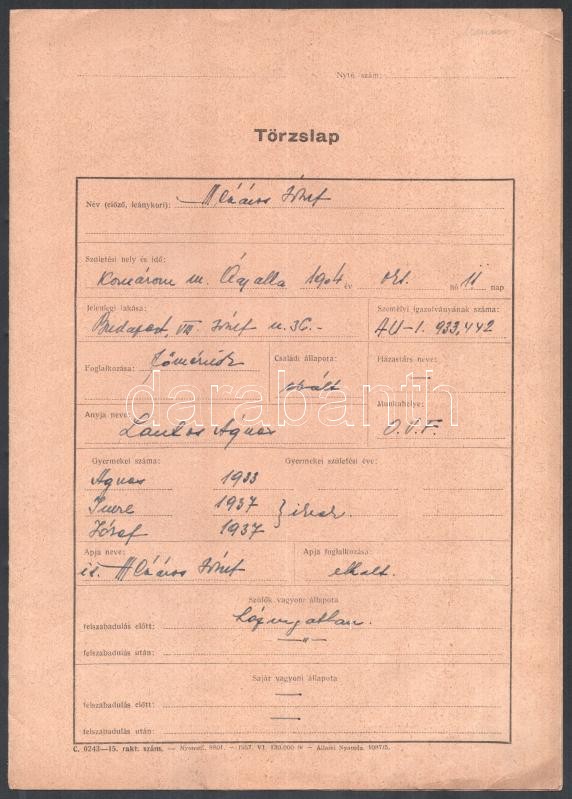 Nytó szám:
Törzslap
Név (előző, leánykori): József
Születési hely és idő:
Komárom m. Ógyalla 1904 év okt. hó 11 nap
Jelenlegi lakása: Személyi igazolványának száma:
Budapest, VIII. József u. 36.- AU-I. 933,442
Foglalkozása: Családi állapota: Házastárs neve:
főmérnök elvált —
Munkahelye:
Anyja neve: O.V.F.
Lantos Ágnes
Gyermekei száma: Gyermekei születési éve:
Ágnes 1933
Imre 1937
József 1937 } ikrek.
Apja neve: Apja foglalkozása:
id. József elhalt.
Szülők vagyoni állapota
felszabadulás előtt:
felszabadulás után: —„—
Saját vagyoni állapota
felszabadulás előtt: —
felszabadulás után: —
C. 0243—15. rakt. szám. — Nyomt. 8801. — 1957. VI. 120.000 — Állami Nyomda.
darabanth